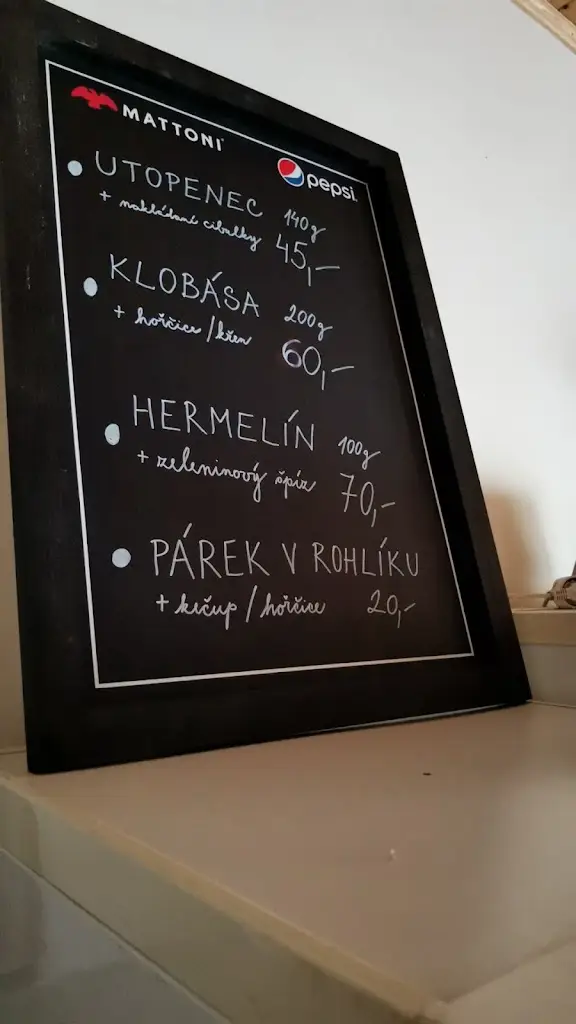 MATTONI
pepsi
UTOPENEC 140g
+ nakládané cibulky 45,-
KLOBÁSA 200g
+ hořčice/křen 60,-
HERMELÍN 100g
+ zeleninový špíz 70,-
PÁREK V ROHLÍKU
+ kečup/hořčice 20,-